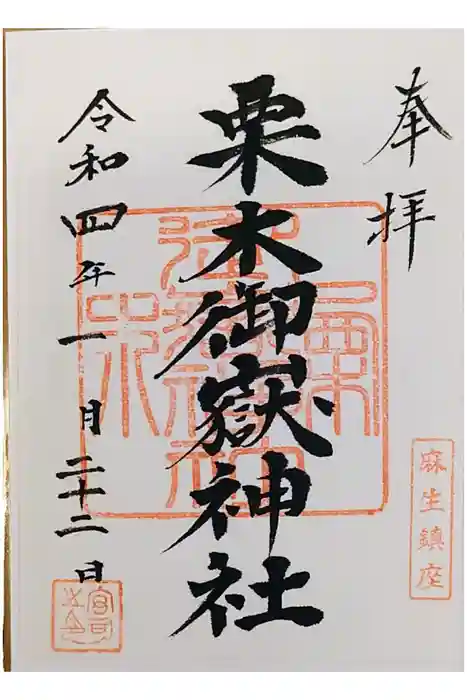 奉拝
麻生鎮座
栗木御嶽神社
令和四年一月二十二日